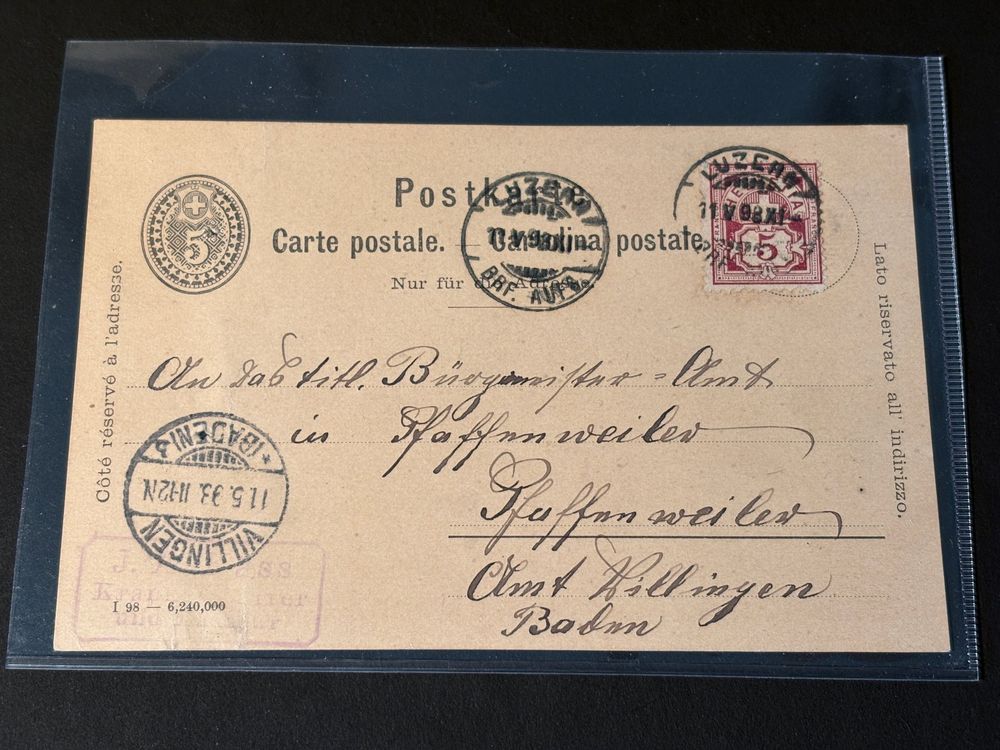 Postkarte.
Carte postale. — Cartolina postale.
Nur für die Adresse.
5
HELVETIA
5
LUZERN
11.V.98.XI—
BRF. AUFG.
LUZERN
11.V.98.XI—
Côté réservé à l'adresse.
Lato riservato all' indirizzo.
An das titl. Bürgermeister-Amt
in Pfaffenweiler
Pfaffenweiler
Amt Villingen
Baden
VILLINGEN
11.5.98. 11-12N.
* (BADEN) *
I 98 — 6,240,000